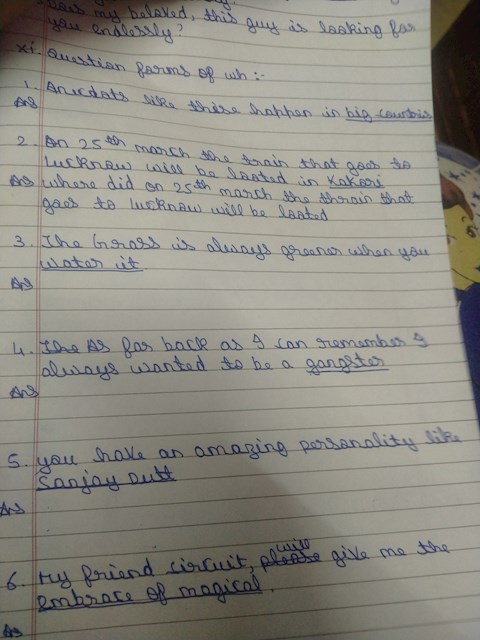 my beloved, this guy is looking for
you endlessly?
xi. Question forms of wh :-
1. Anecdats like these happen in big countries
Ans
2. On 25th march the train that goes to
lucknow will be looted in Kakori
Ans where did on 25th march the thrain that
goes to lucknow will be looted
3. The Grass is always greener when you
water it
Ans
4. The As far back as I can remember I
always wanted to be a gangster
Ans
5. you have an amazing personality like
Sanjay Dutt
Ans
6. My friend circuit, will give me the
embrace of magical.
Ans